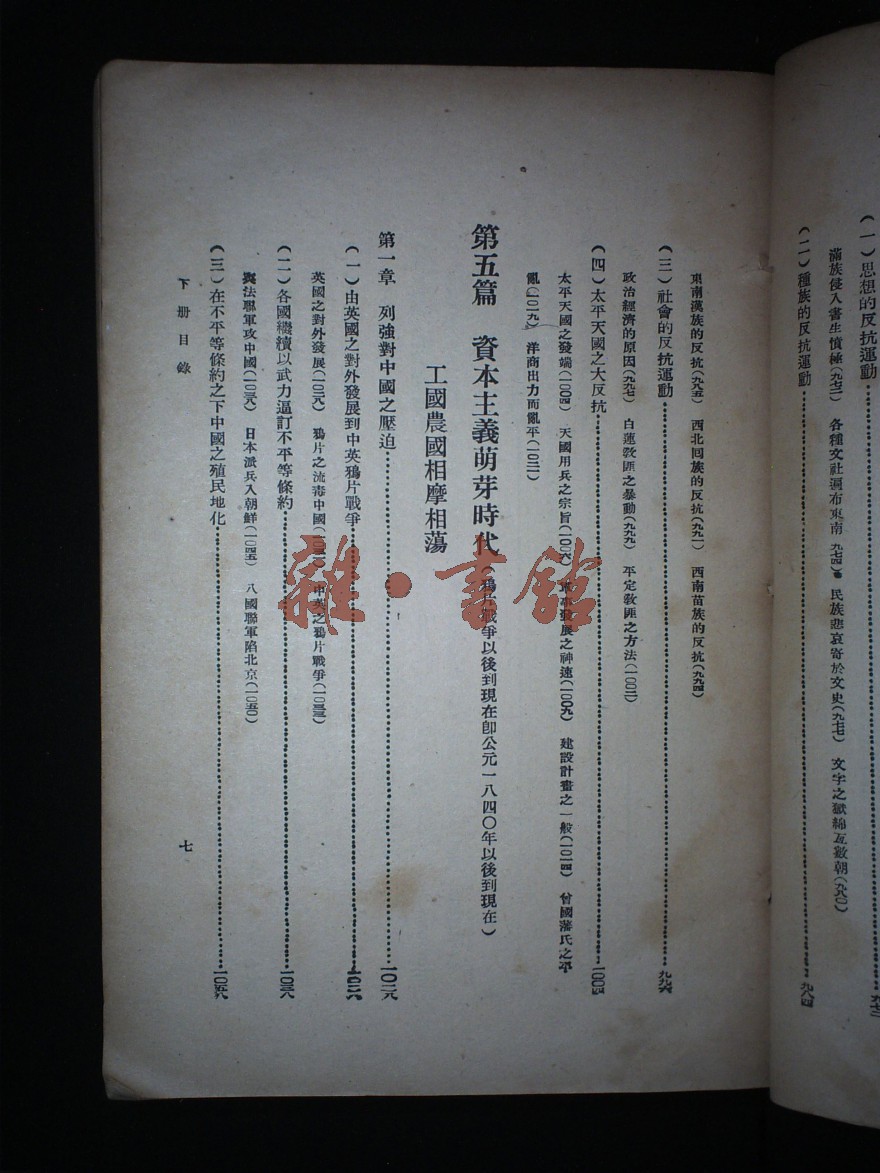 （一）思想的反抗運動
滿族侵入書生憤極（九七二）　各種文社遍布東南　九七四）　民族悲哀寄於文史（九七七）　文字之獄綿亙數朝（九八〇）
（二）種族的反抗運動……九八四
東南漢族的反抗（九八五）　西北回族的反抗（九九一）　西南苗族的反抗（九九四）
（三）社會的反抗運動……九九六
政治經濟的原因（九九七）　白蓮敎匪之暴動（九九九）　平定敎匪之方法（一〇〇二）
（四）太平天國之大反抗……一〇〇四
太平天國之發端（一〇〇四）　天國用兵之宗旨（一〇〇六）　發展之神速（一〇〇九）　建設計畫之一般（一〇一四）　曾國藩氏之平
亂（一〇一九）　洋商出力而亂平（一〇二一）
第五篇　資本主義萌芽時代（鴉片戰爭以後到現在卽公元一八四〇年以後到現在）
工國農國相摩相蕩
第一章　列強對中國之壓迫……
（一）由英國之對外發展到中英鴉片戰爭……
英國之對外發展　鴉片之流毒中國　中英之鴉片戰爭（一〇三三）
（二）各國繼續以武力逼訂不平等條約……一〇三八
英法聯軍攻中國　日本派兵入朝鮮（一〇四五）　八國聯軍陷北京（一〇五〇）
（三）在不平等條約之下中國之殖民地化……一〇五八
下冊目錄
七
雜·書館